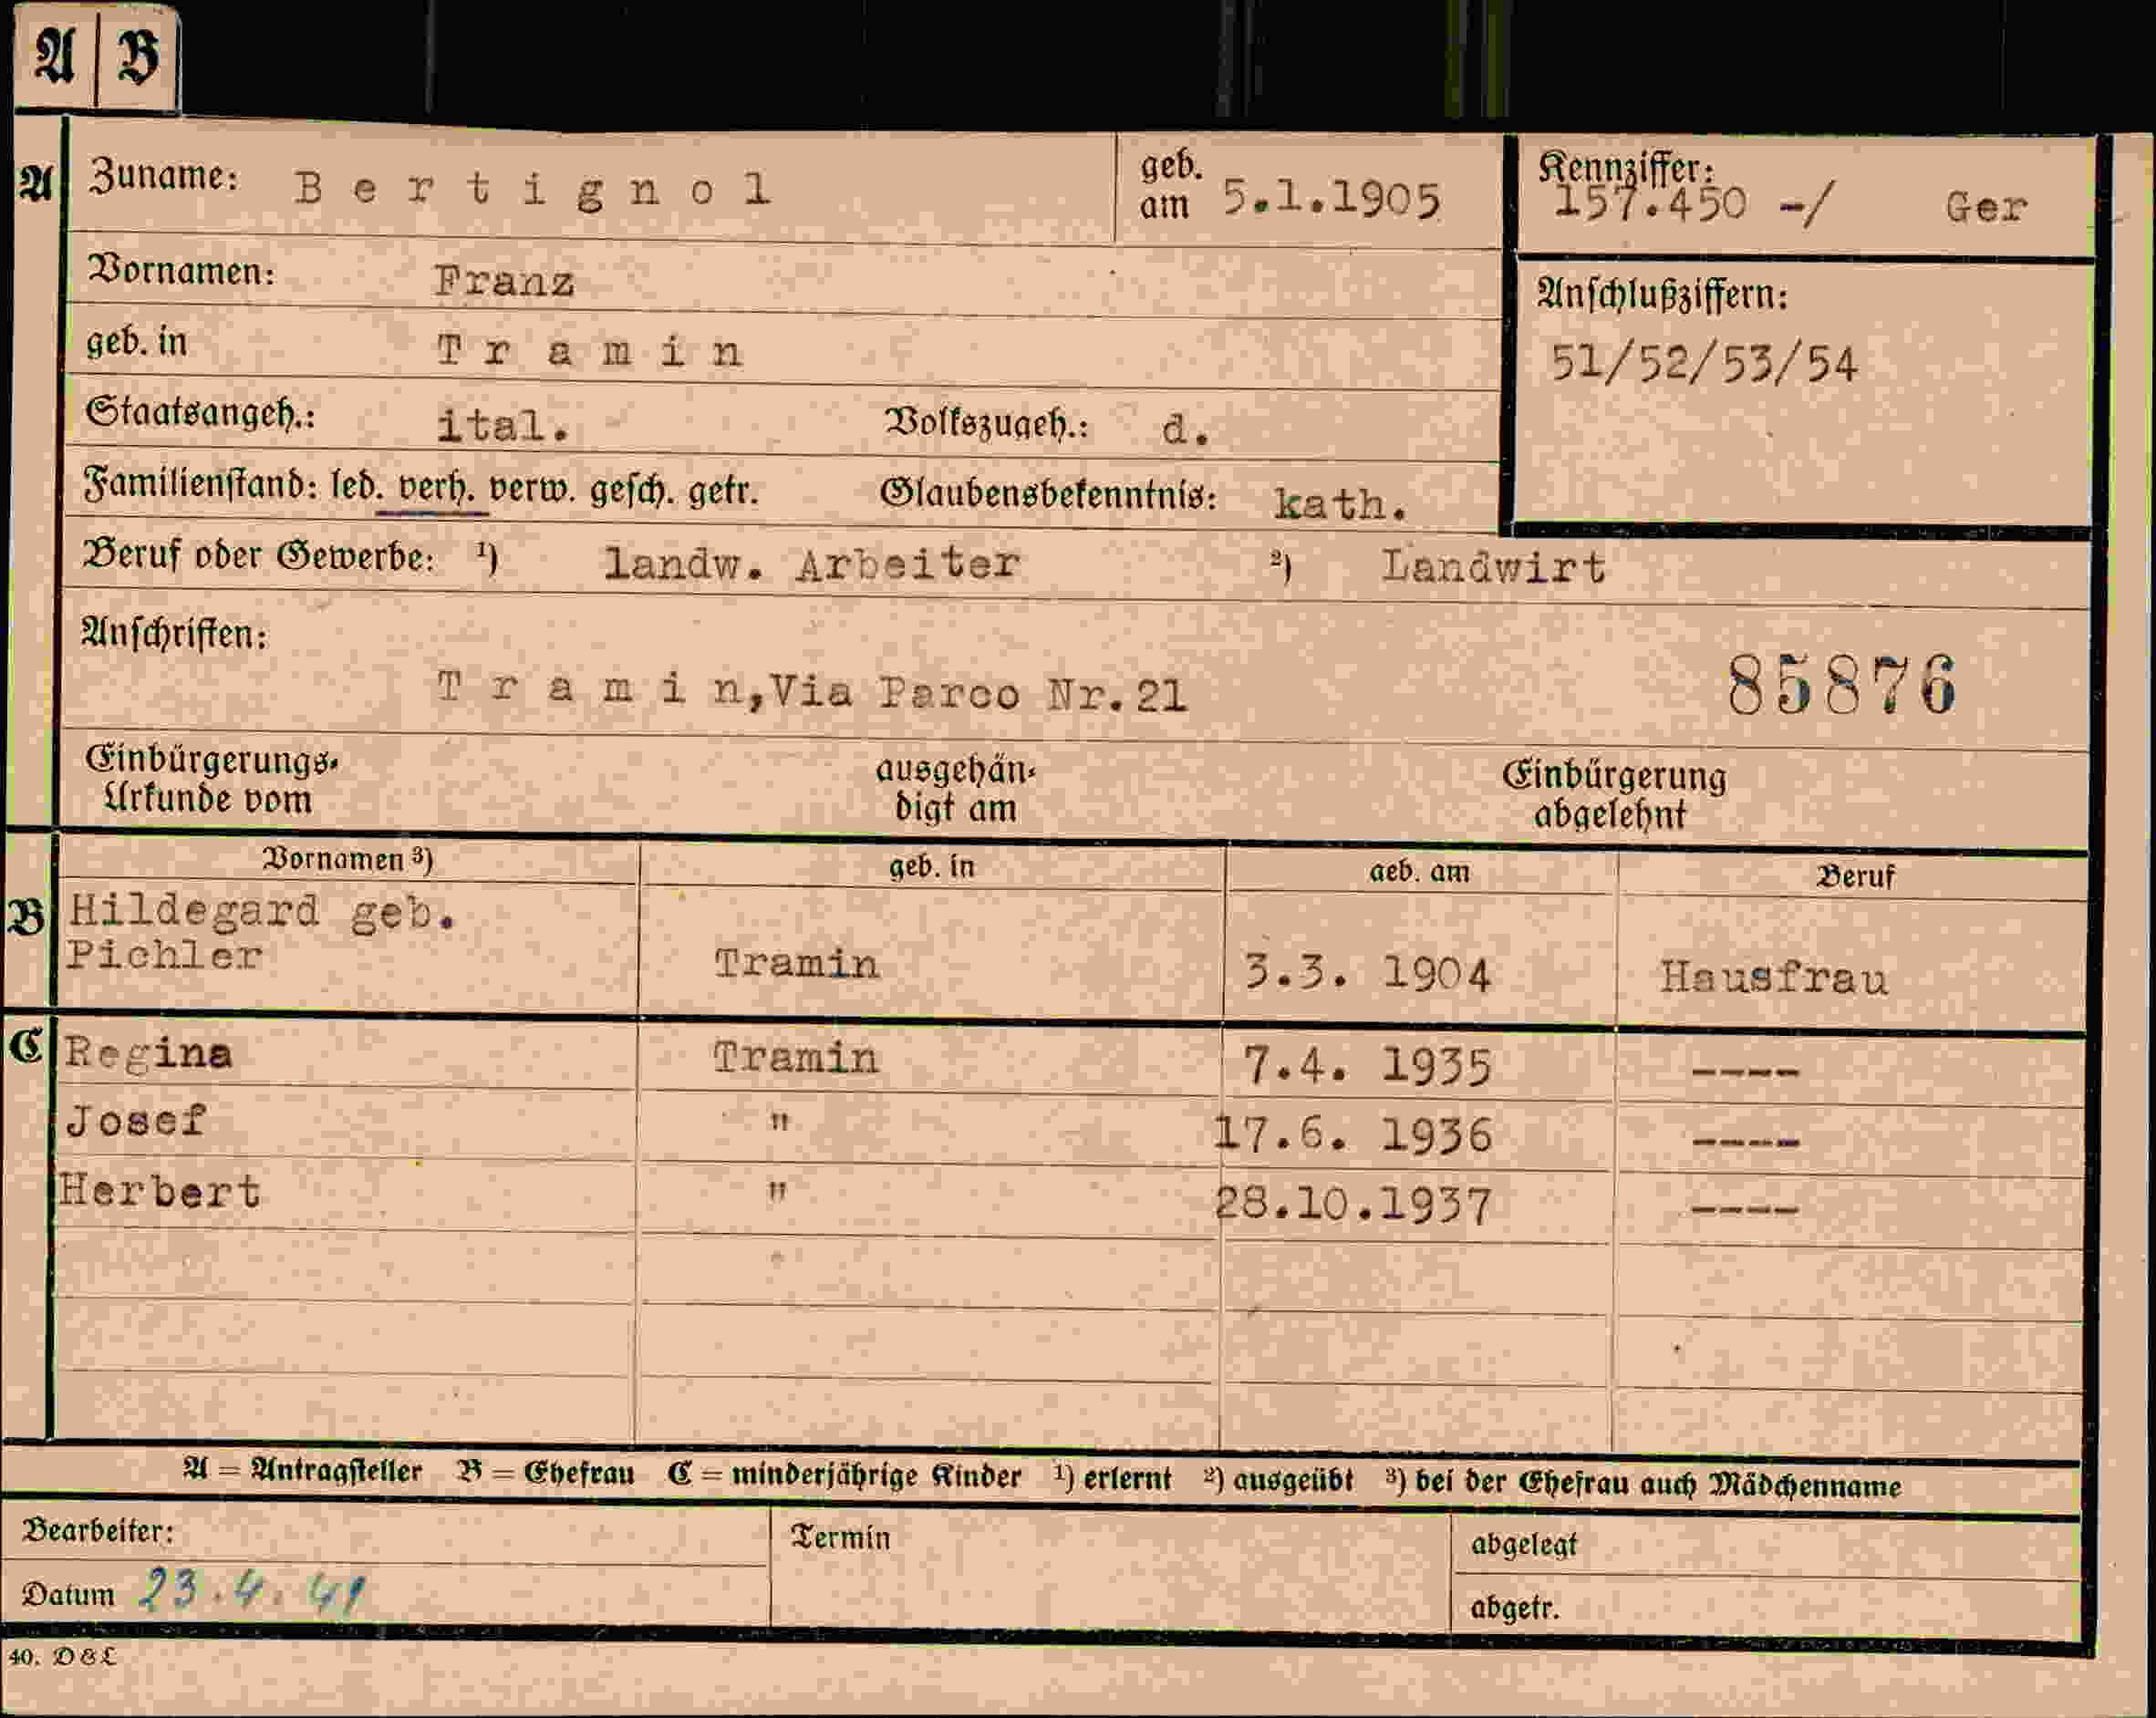 A B
A Zuname: Bertignol geb. am 5.1.1905 Kennziffer: 157.450 -/ Ger
Vornamen: Franz
Anschlußziffern:
geb. in Tramin
51/52/53/54
Staatsangeh.: ital. Volkszugeh.: d.
Familienstand: led. verh. verw. gesch. getr. Glaubensbekenntnis: kath.
Beruf oder Gewerbe: ¹) landw. Arbeiter ²) Landwirt
Anschriften:
Tramin, Via Parco Nr. 21 85876
Einbürgerungs- ausgehän- Einbürgerung
Urkunde vom digt am abgelehnt
Vornamen ³) geb. in geb. am Beruf
B Hildegard geb.
Pichler Tramin 3.3. 1904 Hausfrau
C Regina Tramin 7.4. 1935 ----
Josef " 17.6. 1936 ----
Herbert " 28.10.1937 ----
A = Antragsteller B = Ehefrau C = minderjährige Kinder ¹) erlernt ²) ausgeübt ³) bei der Ehefrau auch Mädchenname
Bearbeiter: Termin abgelegt
Datum 23.4.41 abgetr.
40. D&L